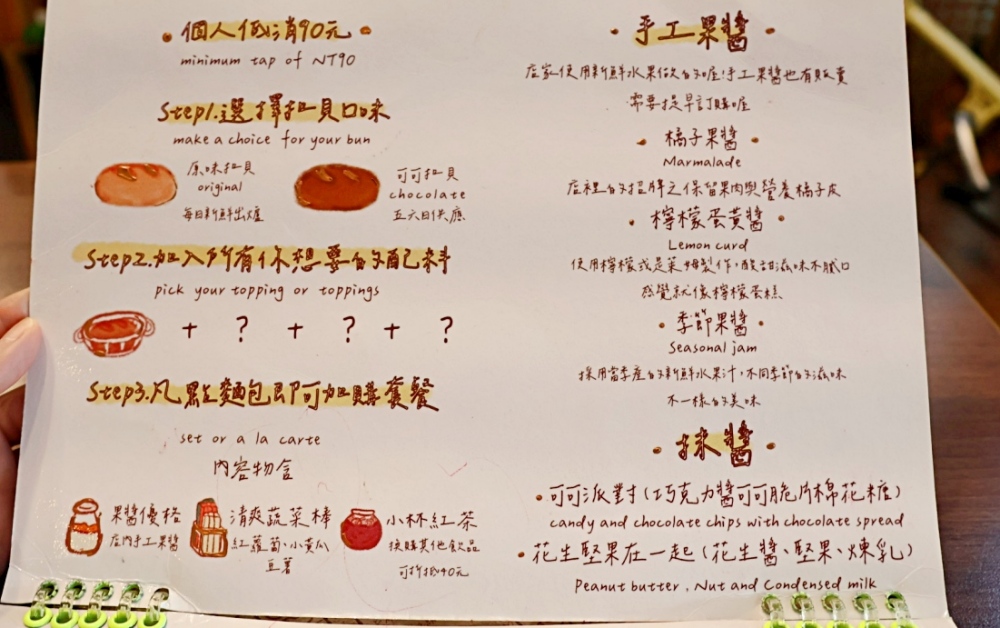 個人低消90元
minimum tap of NT90
Step1.選擇扣貝口味
make a choice for your bun
原味扣貝
original
每日新鮮出爐
可可扣貝
chocolate
五六日供應
Step2.加入所有你想要的配料
pick your topping or toppings
+ ? + ? + ?
Step3.凡點麵包即可加購套餐
set or a la carte
內容物含
果醬優格
店內手工果醬
清爽蔬菜棒
紅蘿蔔、小黃瓜
豆薯
小林紅茶
換購其他飲品
可折抵40元
手工果醬
店家使用新鮮水果做的喔!手工果醬也有販賣
需要提早訂購喔
橘子果醬
Marmalade
店裡的招牌之一保留果肉與營養橘子皮
檸檬蛋黃醬
Lemon curd
使用檸檬或是萊姆製作,酸甜滋味不膩口
感覺就像檸檬蛋糕
季節果醬
Seasonal jam
採用當季產的新鮮水果汁,不同季節的滋味
不一樣的美味
抹醬
可可派對(巧克力醬可可脆片棉花糖)
candy and chocolate chips with chocolate spread
花生堅果在一起(花生醬、堅果、煉乳)
Peanut butter, Nut and Condensed milk